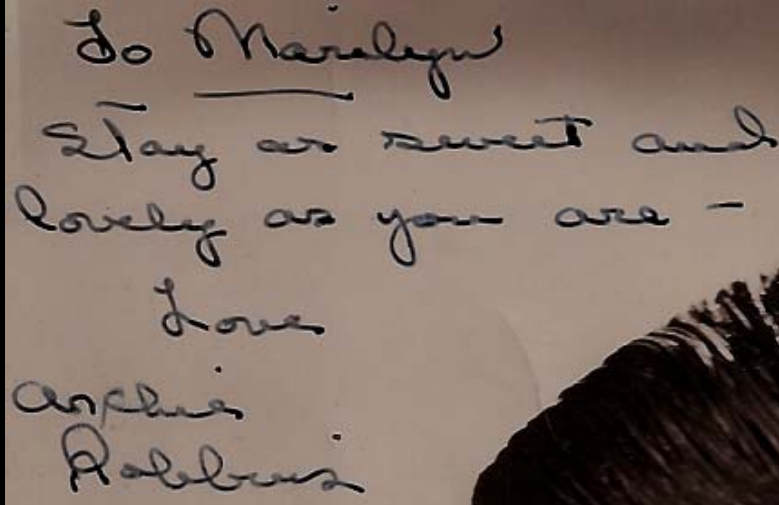 To Marilyn
Stay as sweet and
lovely as you are -
Love
Archie
Robbins